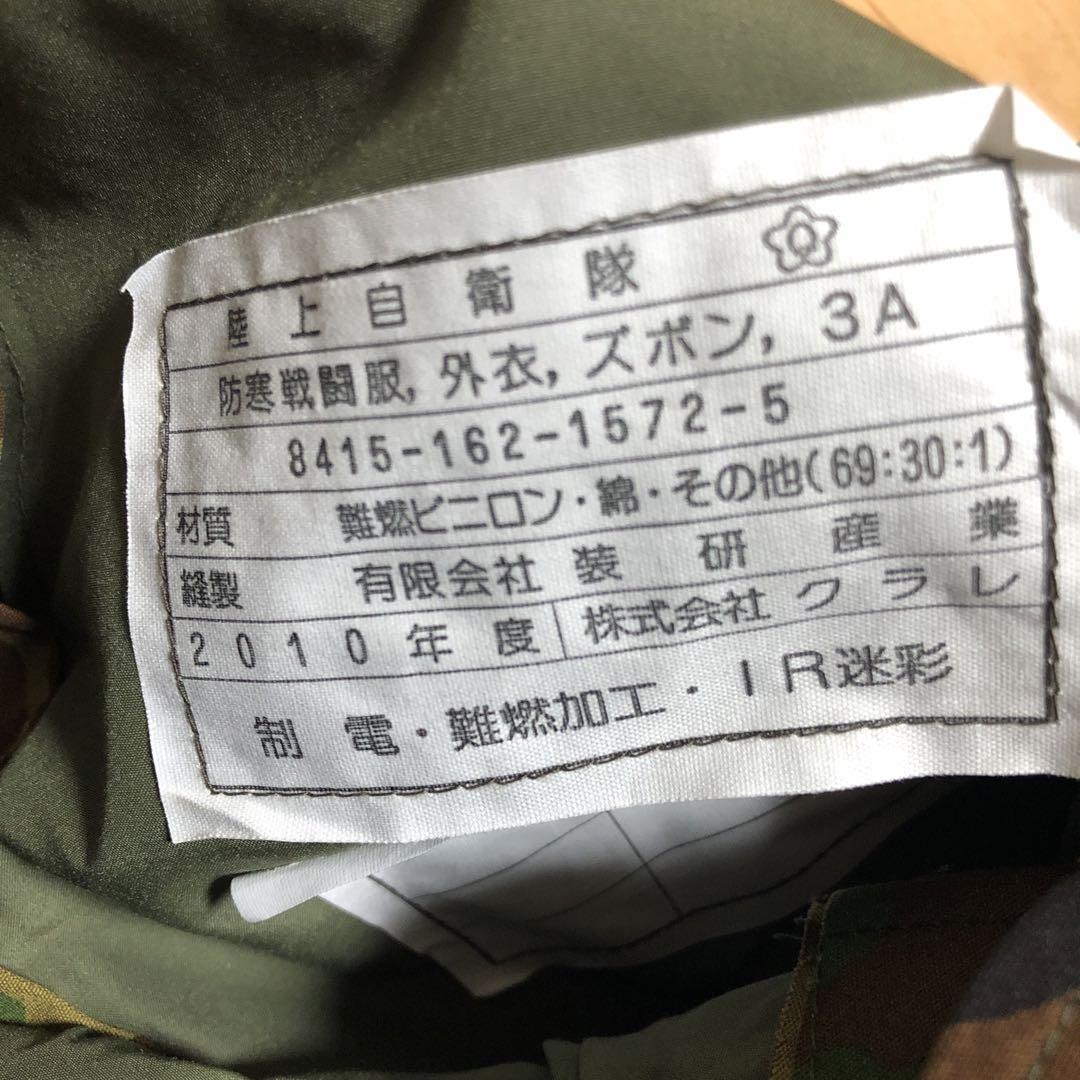 陸上自衛隊
防寒戦闘服, 外衣, ズボン, 3A
8415-162-1572-5
材質 難燃ビニロン・綿・その他(69:30:1)
縫製 有限会社 装研産業
2010年度 株式会社クラレ
制電・難燃加工・IR迷彩